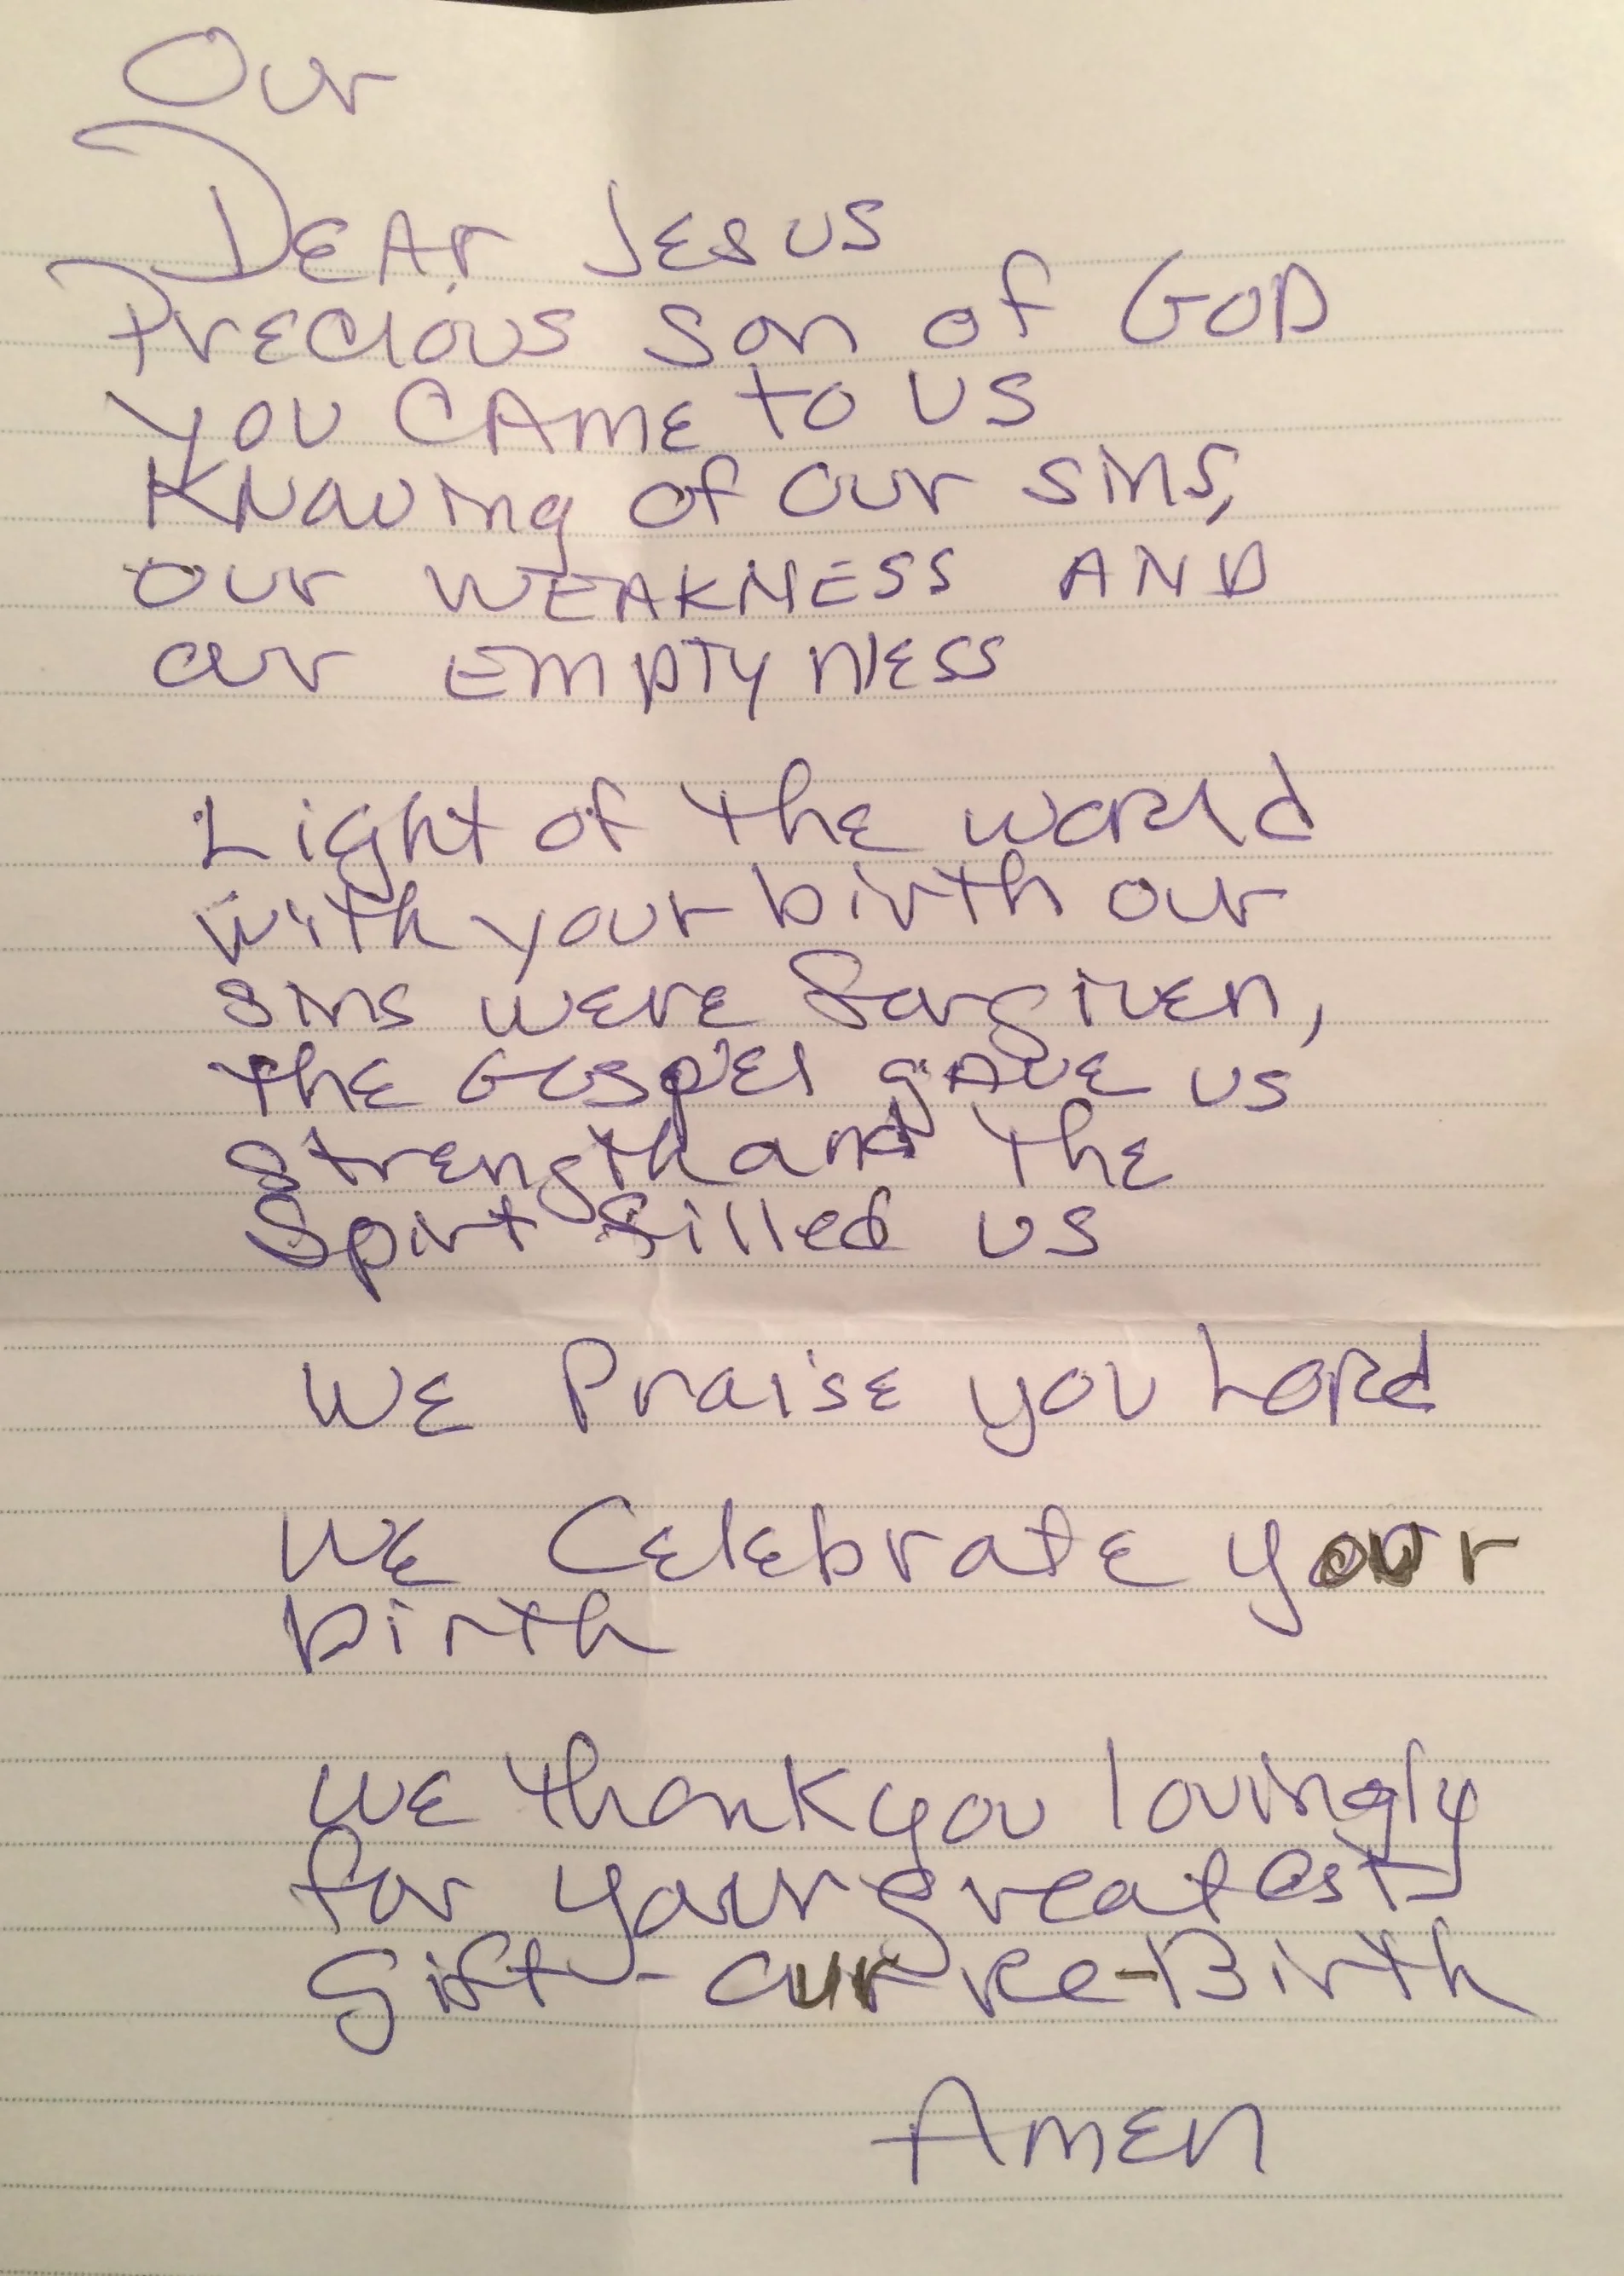 Our
DEAr JESUS
PrECIOUS SON of GOD
YOU CAME to US
KNOWing of our SINS,
our WEAKNESS AND
our EMPTYNESS
Light of the WORld
with your birth our
sins were forgiven,
the Gospel gAVE us
strength and the
Spirit filled us
WE Praise you LORd
WE CElEbratE your
birth
WE thank you lovingly
for your greatest
gift - our Re-Birth
AMEN